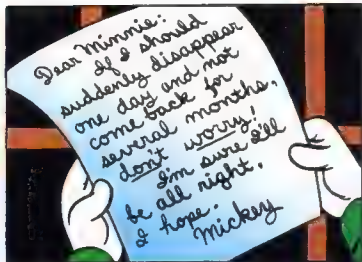 Dear Minnie:
If I should
suddenly disappear
one day and not
come back for
several months,
don't worry!
I'm sure I'll
be all right,
I hope.
Mickey